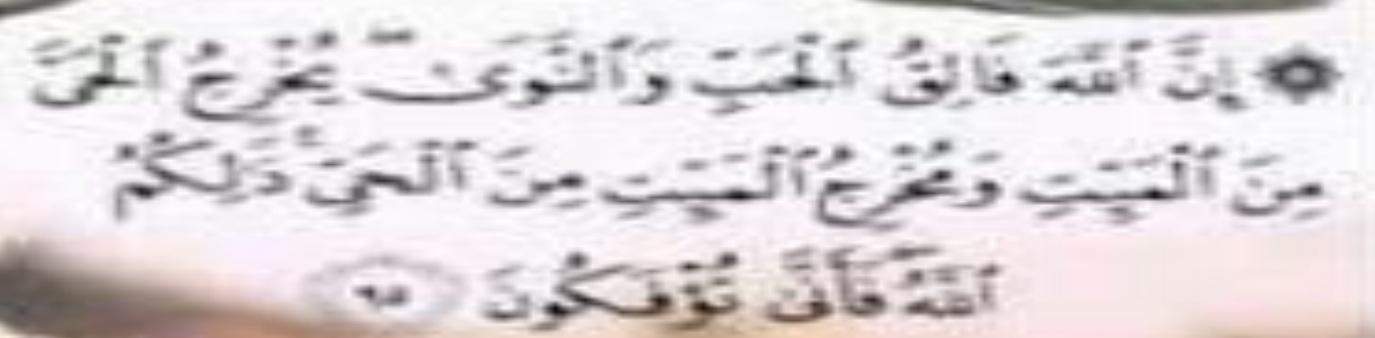 ۞ إِنَّ ٱللَّهَ فَالِقُ ٱلْحَبِّ وَٱلنَّوَىٰ ۖ يُخْرِجُ ٱلْحَىَّ
مِنَ ٱلْمَيِّتِ وَمُخْرِجُ ٱلْمَيِّتِ مِنَ ٱلْحَىِّ ۚ ذَٰلِكُمُ
ٱللَّهُ ۖ فَأَنَّىٰ تُؤْفَكُونَ ٩٥